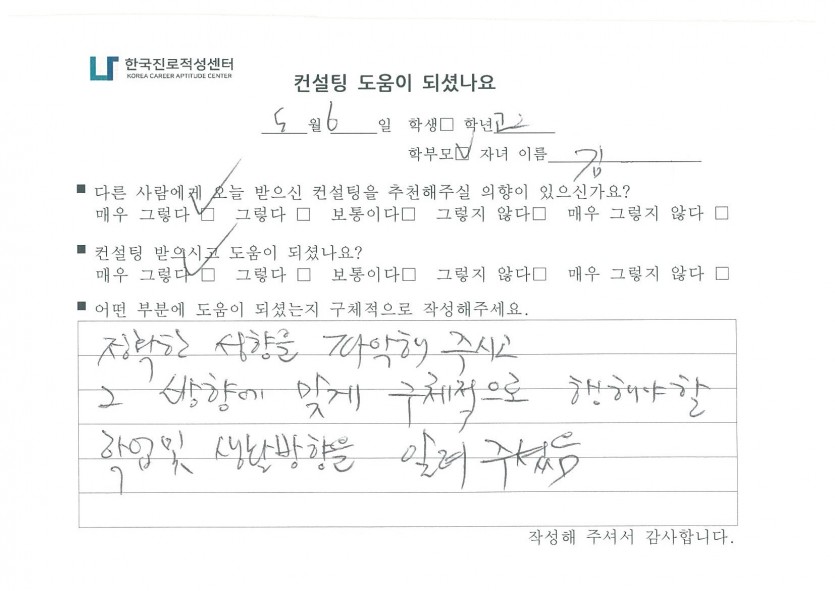 한국진로적성센터
KOREA CAREER APTITUDE CENTER
컨설팅 도움이 되셨나요
5월 6일 학생□ 학년 고2
학부모☑ 자녀 이름 김
■ 다른 사람에게 오늘 받으신 컨설팅을 추천해주실 의향이 있으신가요?
매우 그렇다 ☑ 그렇다 □ 보통이다□ 그렇지 않다□ 매우 그렇지 않다 □
■ 컨설팅 받으시고 도움이 되셨나요?
매우 그렇다 ☑ 그렇다 □ 보통이다□ 그렇지 않다□ 매우 그렇지 않다 □
■ 어떤 부분에 도움이 되셨는지 구체적으로 작성해주세요.
정확한 성향을 파악해 주시고
그 방향에 맞게 구체적으로 행해야할
학업및 생활방향을 알려 주셨음
작성해 주셔서 감사합니다.